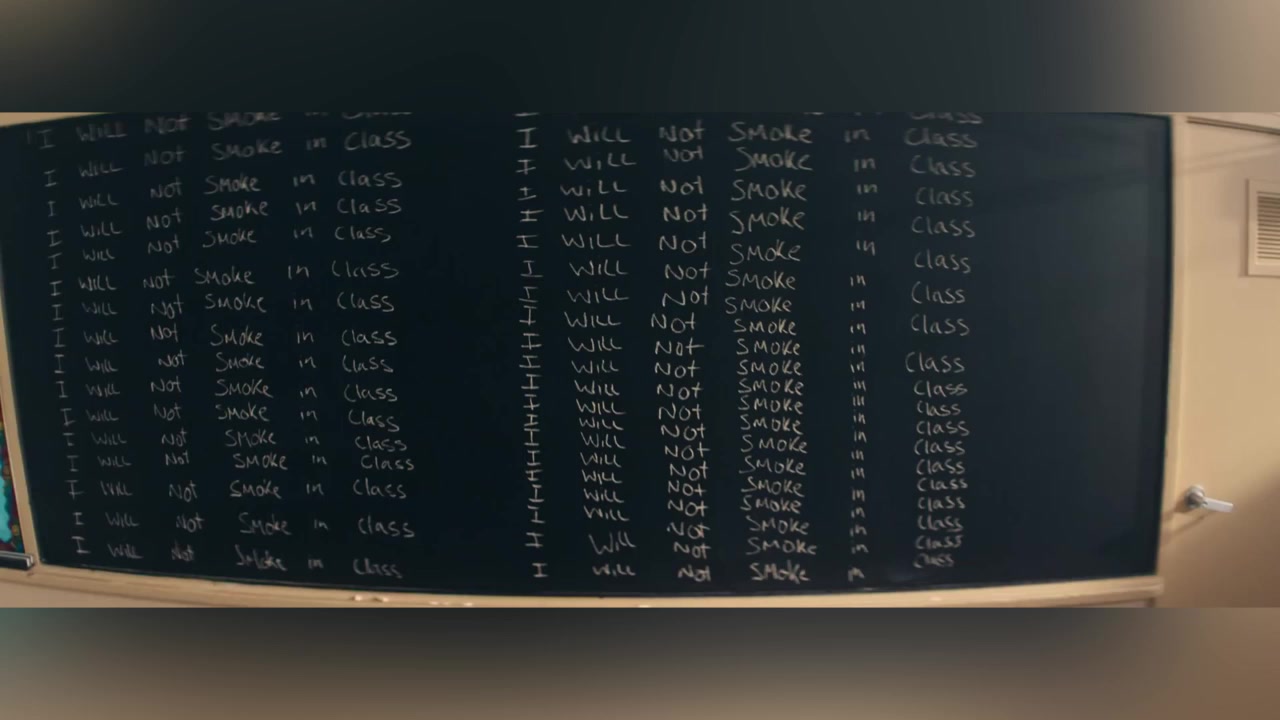 I WILL Not SMOKE in Class
I WILL Not SMOKE in Class
I WILL Not SMOKE in Class
I WILL Not SMOKE in Class
I WILL Not SMOKE in Class
I WILL Not SMOKE in Class
I WILL Not SMOKE in Class
I WILL Not SMOKE in Class
I WILL Not SMOKE in Class
I WILL Not SMOKE in Class
I WILL Not SMOKE in Class
I WILL Not SMOKE in Class
I WILL Not SMOKE in Class
I WILL Not SMOKE in Class
I WILL Not SMOKE in Class
I WILL Not SMOKE in Class
I WILL Not SMOKE in Class
I WILL Not SMOKE in Class
I WILL Not SMOKE in Class
I WILL Not SMOKE in Class
I WILL Not SMOKE in Class
I WILL Not SMOKE in Class
I WILL Not SMOKE in Class
I WILL Not SMOKE in Class
I WILL Not SMOKE in Class
I WILL Not SMOKE in Class
I WILL Not SMOKE in Class
I WILL Not SMOKE in Class
I WILL Not SMOKE in Class
I WILL Not SMOKE in Class
I WILL Not SMOKE in Class
I WILL Not SMOKE in Class
I WILL Not SMOKE in Class
I WILL Not SMOKE in Class
I WILL Not SMOKE in Class
I WILL Not SMOKE in